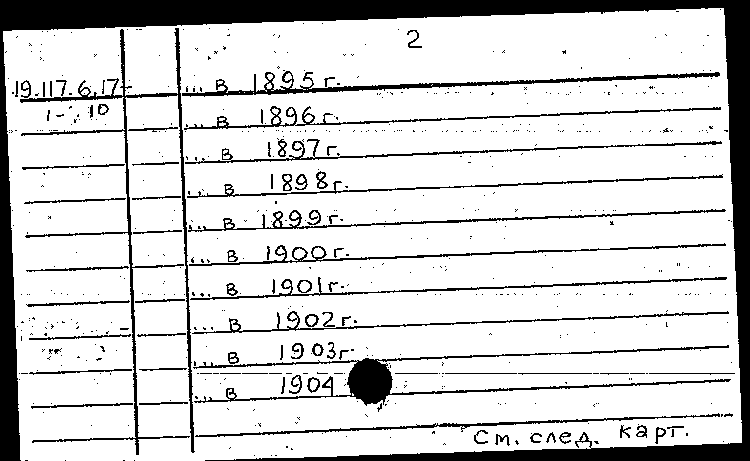 2
19.117.6.17- ... в 1895 г.
1-10 ... в 1896 г.
... в 1897 г.
... в 1898 г.
... в 1899 г.
... в 1900 г.
... в 1901 г.
... в 1902 г.
... в 1903 г.
... в 1904
См. след. карт.